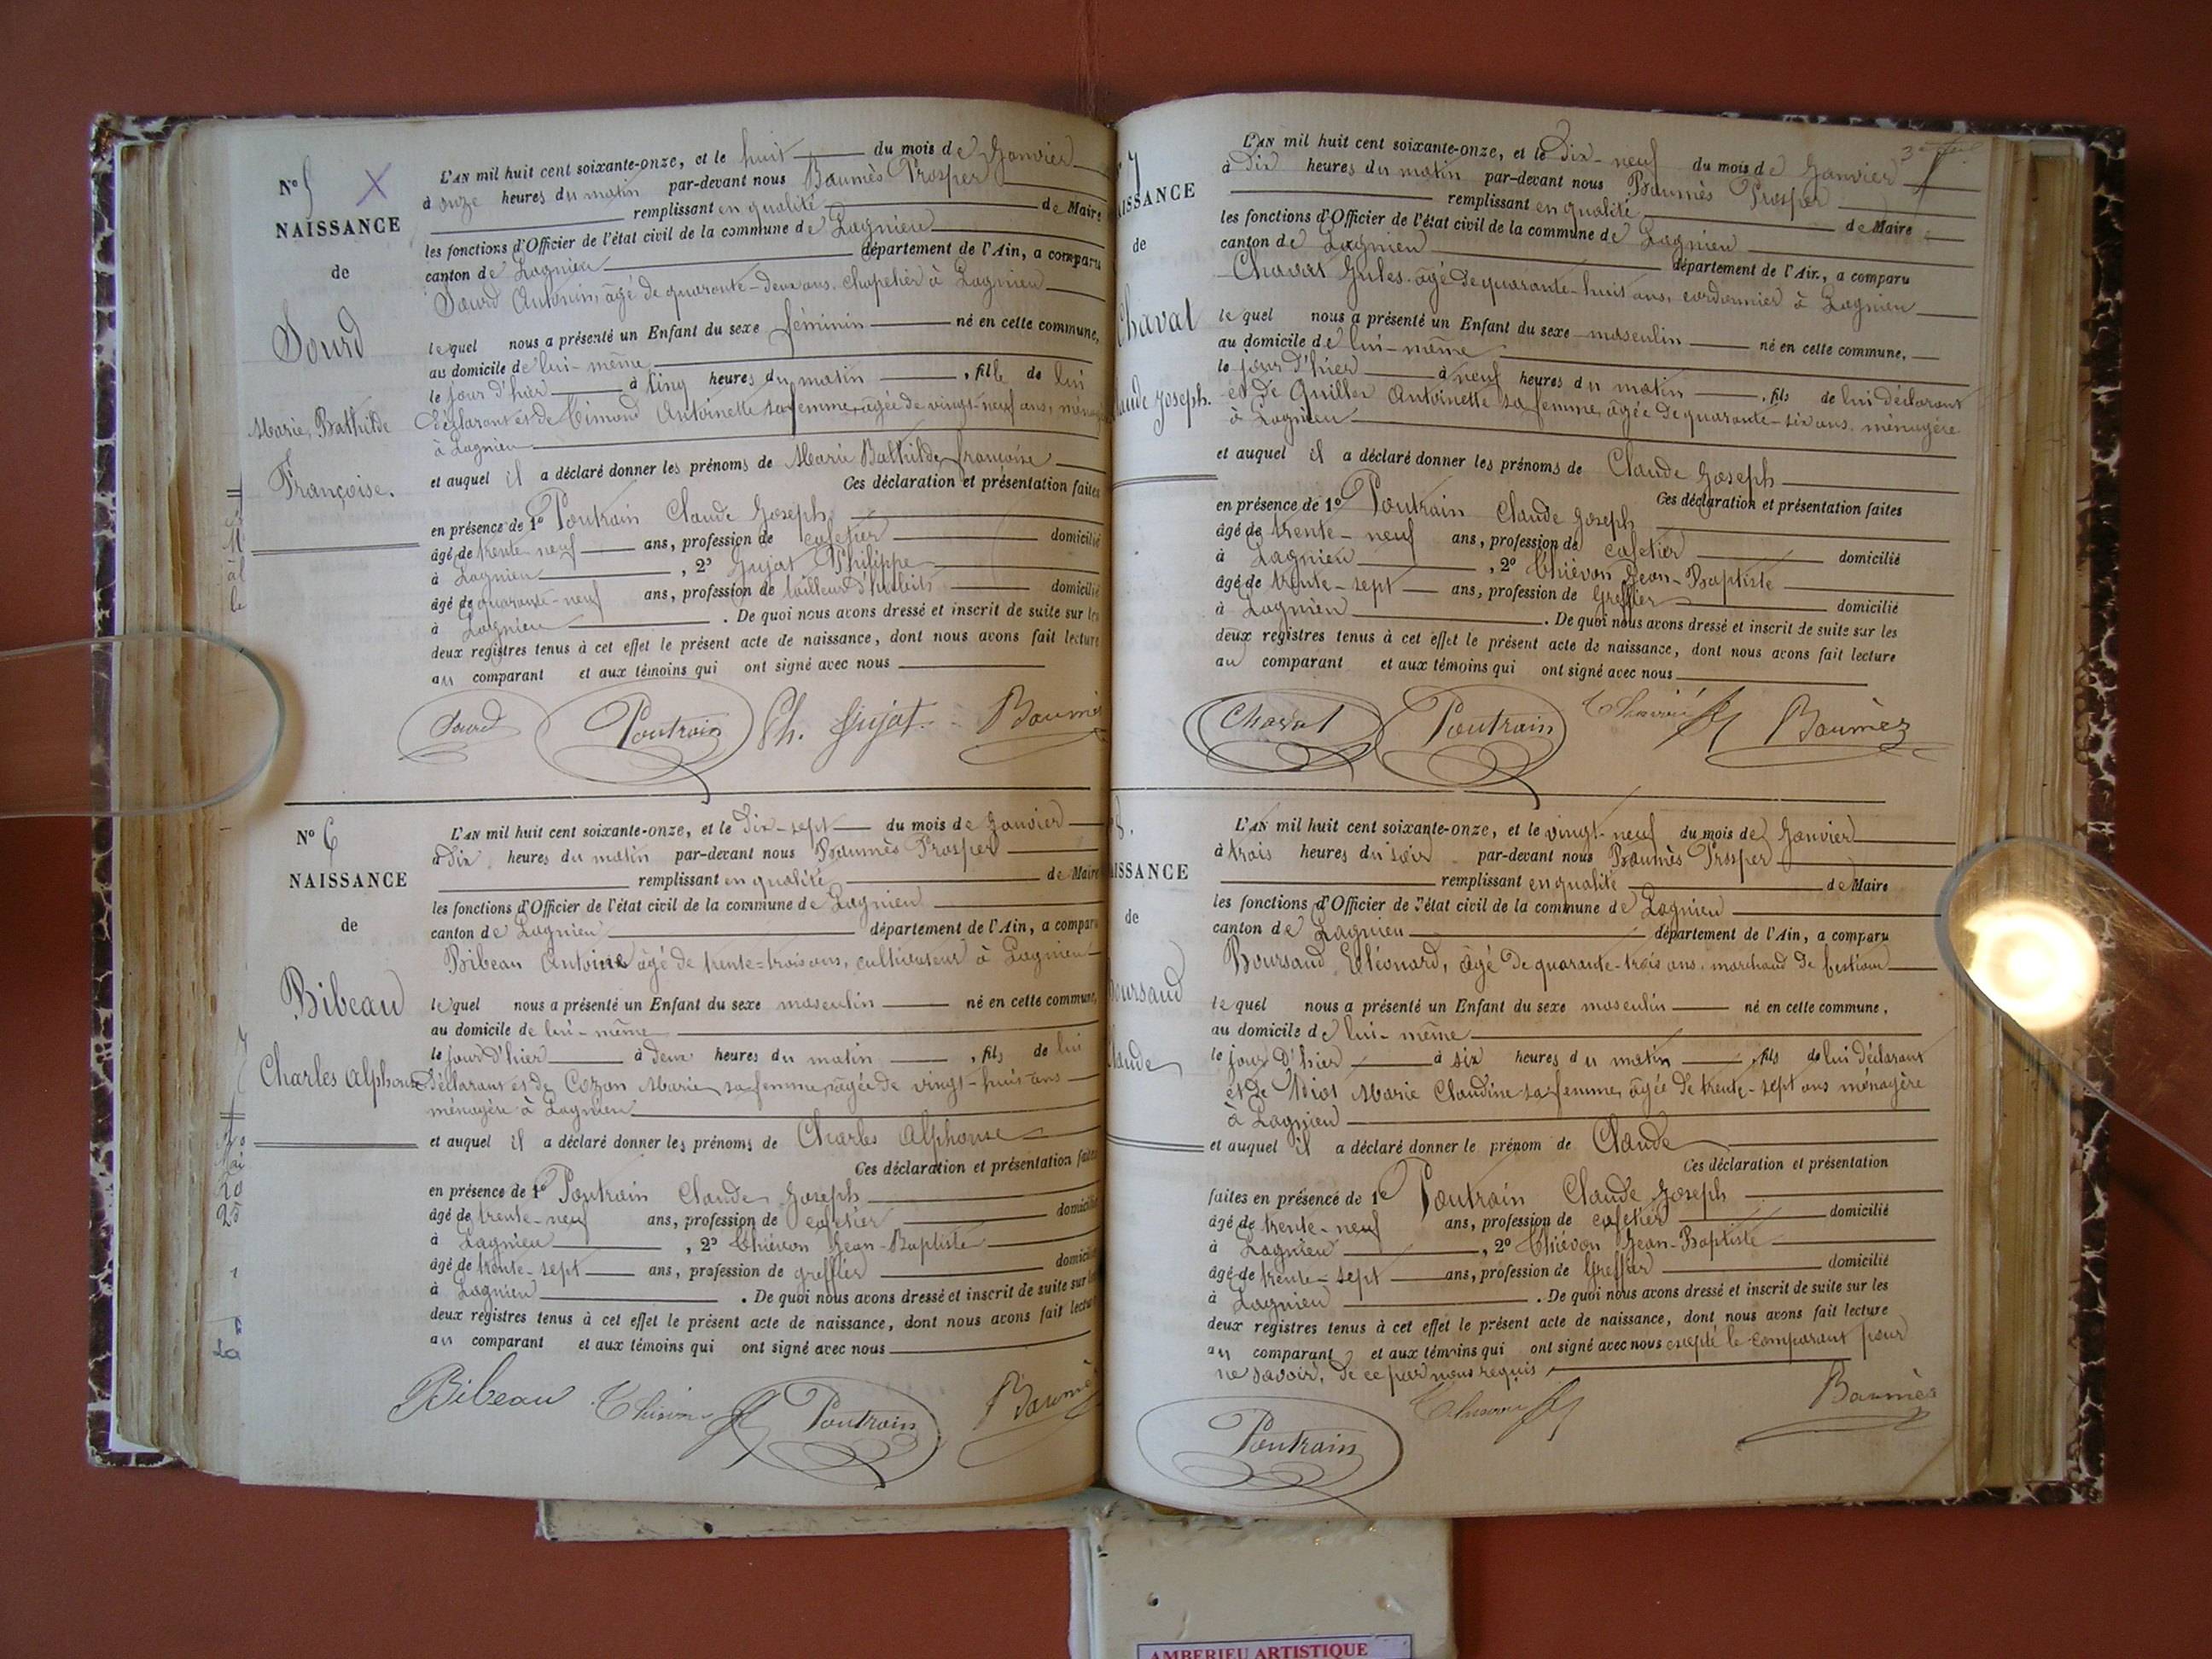 N° 5 X
NAISSANCE
de
Sourd
Marie, Bathilde
Françoise.
L'AN mil huit cent soixante-onze, et le huit du mois de Janvier
à onze heures du matin par-devant nous Baumès Prosper
remplissant en qualité de Maire
les fonctions d'Officier de l'état civil de la commune de Lagnieu
canton de Lagnieu département de l'Ain, a comparu
Sourd Antonin, âgé de quarante-deux ans, chapelier à Lagnieu
lequel nous a présenté un Enfant du sexe féminin né en cette commune,
au domicile de lui-même
le jour d'hier à cinq heures du matin, fille de lui
déclarant et de Cimond Antoinette sa femme, âgée de vingt-neuf ans, ménagère
à Lagnieu
et auquel il a déclaré donner les prénoms de Marie Bathilde françoise
Ces déclaration et présentation faites
en présence de 1° Poutrain Claude Joseph
âgé de trente-neuf ans, profession de cafetier domicilié
à Lagnieu, 2° Gujat Philippe
âgé de quarante-neuf ans, profession de tailleur d'habits domicilié
à Lagnieu. De quoi nous avons dressé et inscrit de suite sur les
deux registres tenus à cet effet le présent acte de naissance, dont nous avons fait lecture
au comparant et aux témoins qui ont signé avec nous
Sourd Poutrain Ph. Gujat Baumès
N° 6
NAISSANCE
de
Bibeau
Charles Alphonse
L'AN mil huit cent soixante-onze, et le dix-sept du mois de Janvier
à dix heures du matin par-devant nous Baumès Prosper
remplissant en qualité de Maire
les fonctions d'Officier de l'état civil de la commune de Lagnieu
canton de Lagnieu département de l'Ain, a comparu
Bibeau Antoine âgé de trente-trois ans, cultivateur à Lagnieu
lequel nous a présenté un Enfant du sexe masculin né en cette commune,
au domicile de lui-même
le jour d'hier à deux heures du matin, fils de lui
déclarant et de Cozon Marie, sa femme, âgée de vingt-huit ans
ménagère à Lagnieu
et auquel il a déclaré donner les prénoms de Charles Alphonse
Ces déclaration et présentation faites
en présence de 1° Poutrain Claude Joseph
âgé de trente-neuf ans, profession de cafetier domicilié
à Lagnieu, 2° Thiévon Jean-Baptiste
âgé de trente-sept ans, profession de greffier domicilié
à Lagnieu. De quoi nous avons dressé et inscrit de suite sur les
deux registres tenus à cet effet le présent acte de naissance, dont nous avons fait lecture
au comparant et aux témoins qui ont signé avec nous
Bibeau Thiévon Poutrain Baumès
7
NAISSANCE
de
Chaval
Claude Joseph.
L'AN mil huit cent soixante-onze, et le dix-neuf du mois de Janvier
à dix heures du matin par-devant nous Baumès Prosper
remplissant en qualité de Maire
les fonctions d'Officier de l'état civil de la commune de Lagnieu
canton de Lagnieu département de l'Ain, a comparu
Chaval Jules, âgé de quarante-huit ans, cordonnier à Lagnieu
lequel nous a présenté un Enfant du sexe masculin né en cette commune,
au domicile de lui-même
le jour d'hier à neuf heures du matin, fils de lui déclarant
et de Quiller Antoinette sa femme, âgée de quarante-six ans, ménagère
à Lagnieu
et auquel il a déclaré donner les prénoms de Claude Joseph
Ces déclaration et présentation faites
en présence de 1° Poutrain Claude Joseph
âgé de trente-neuf ans, profession de cafetier domicilié
à Lagnieu, 2° Thiévon Jean-Baptiste
âgé de trente-sept ans, profession de Greffier domicilié
à Lagnieu. De quoi nous avons dressé et inscrit de suite sur les
deux registres tenus à cet effet le présent acte de naissance, dont nous avons fait lecture
au comparant et aux témoins qui ont signé avec nous
Chaval Poutrain Thiévon Baumès
8.
NAISSANCE
de
Boursaud
Claude
L'AN mil huit cent soixante-onze, et le vingt-neuf du mois de Janvier
à trois heures du soir par-devant nous Baumès Prosper
remplissant en qualité de Maire
les fonctions d'Officier de l'état civil de la commune de Lagnieu
canton de Lagnieu département de l'Ain, a comparu
Boursaud Eléonard, âgé de quarante-trois ans, marchand de bestiaux
lequel nous a présenté un Enfant du sexe masculin né en cette commune,
au domicile de lui-même
le jour d'hier à six heures du matin, fils de lui déclarant
et de Marie Claudine sa femme, âgée de trente-sept ans ménagère
à Lagnieu
et auquel il a déclaré donner le prénom de Claude
Ces déclaration et présentation
faites en présence de 1° Poutrain Claude Joseph
âgé de trente-neuf ans, profession de cafetier domicilié
à Lagnieu, 2° Thiévon Jean-Baptiste
âgé de trente-sept ans, profession de Greffier domicilié
à Lagnieu. De quoi nous avons dressé et inscrit de suite sur les
deux registres tenus à cet effet le présent acte de naissance, dont nous avons fait lecture
au comparant et aux témoins qui ont signé avec nous excepté le comparant pour
ne savoir, de ce par nous requis
Poutrain Thiévon Baumès
AMBERIEU ARTISTIQUE